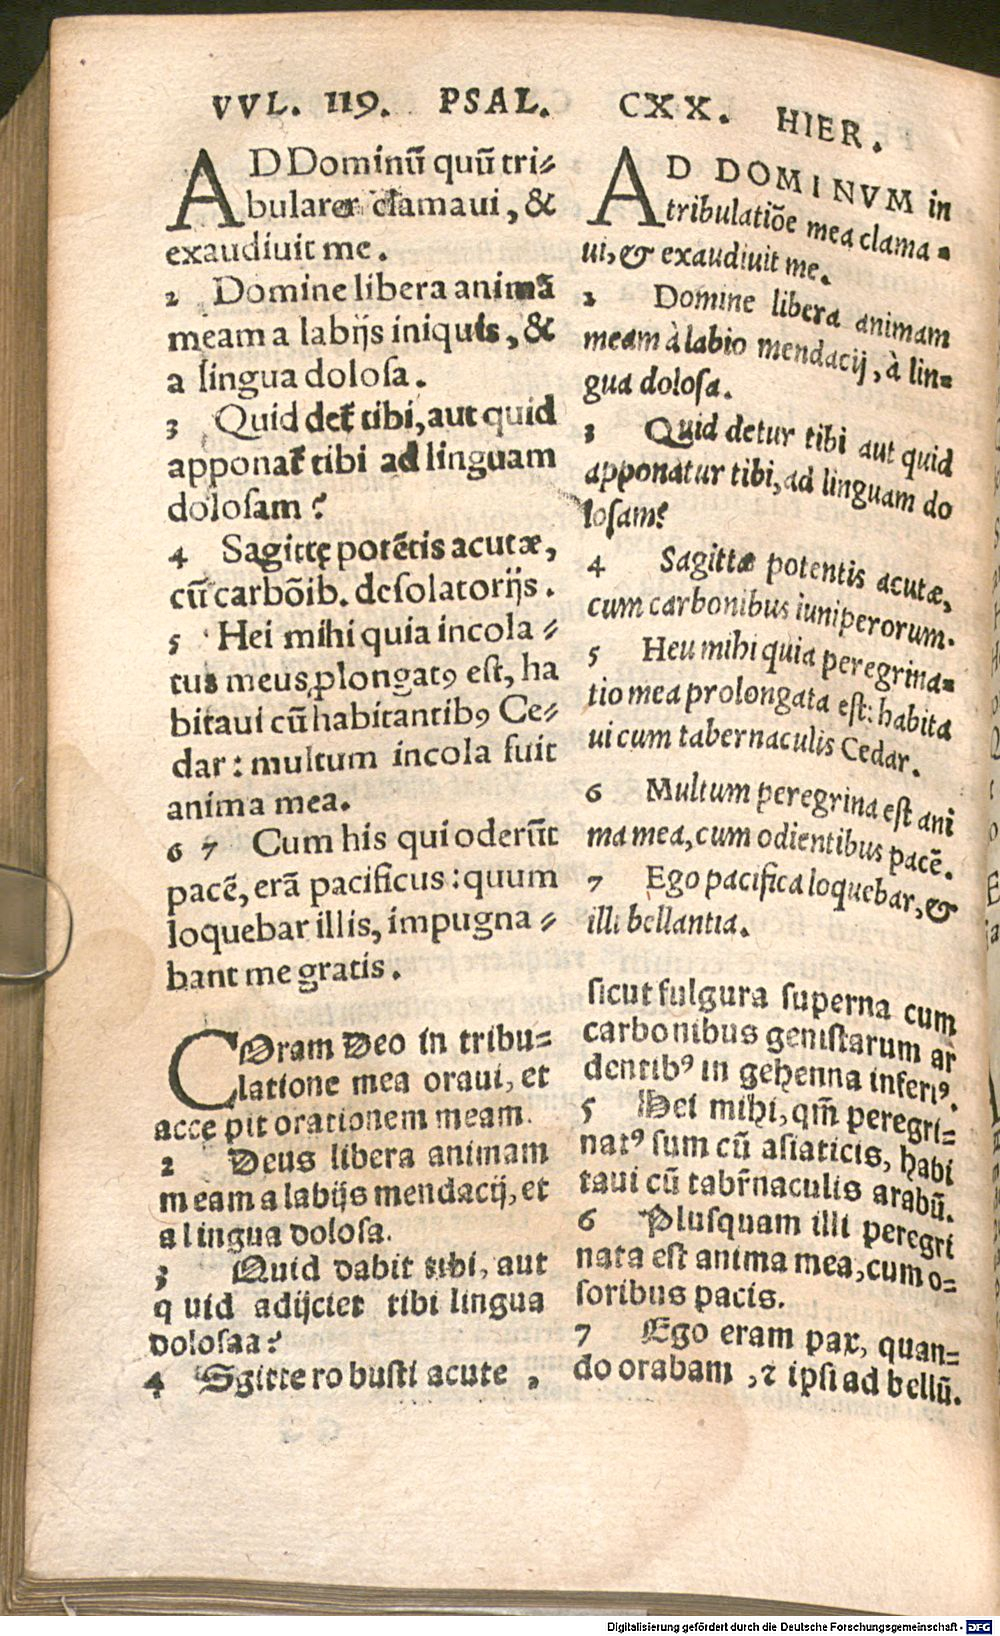 VVL. 119. PSAL. CXX. HIER.
AD Dominū quū tri⸗
bularer clamaui, &
exaudiuit me.
2 Domine libera animā
meam a labijs iniquis, &
a lingua dolosa.
3 Quid det᷑ tibi, aut quid
apponat᷑ tibi ad linguam
dolosam?
4 Sagittę potētis acutæ,
cū carbōib. desolatorijs.
5 Hei mihi quia incola⸗
tus meus ꝓlongatꝰ est, ha
bitaui cū habitantibꝰ Ce⸗
dar: multum incola fuit
anima mea.
6 7 Cum his qui oderūt
pacē, erā pacificus: quum
loquebar illis, impugna⸗
bant me gratis.
AD DOMINVM in
tribulatiōe mea clama⸗
ui, & exaudiuit me.
2 Domine libera animam
meam à labio mendacij, à lin⸗
gua dolosa.
3 Quid detur tibi aut quid
apponatur tibi, ad linguam do
losam?
4 Sagittæ potentis acutæ,
cum carbonibus iuniperorum.
5 Heu mihi quia peregrina⸗
tio mea prolongata est: habita
ui cum tabernaculis Cedar.
6 Multum peregrina est ani
ma mea, cum odientibus pacē.
7 Ego pacifica loquebar, &
illi bellantia.
COram Deo in tribu⸗
latione mea oraui, et
acce pit orationem meam.
2 Deus libera animam
meam a labijs mendacij, et
a lingua dolosa.
3 Quid dabit tibi, aut
quid adijciet tibi lingua
dolosaa?
4 Sgitte robusti acute ,
sicut fulgura superna cum
carbonibus genistarum ar
dentibꝰ in gehenna inferiꝰ.
5 Hei mihi, qm̄ peregri⸗
natꝰ sum cū asiaticis, habi
taui cū tabr̄naculis arabū.
6 Plusquam illi peregri
nata est anima mea, cum o⸗
soribus pacis.
7 Ego eram pax, quan⸗
do orabam , ⁊ ipsi ad bellū.
Digitalisierung gefördert durch die Deutsche Forschungsgemeinschaft - DFG